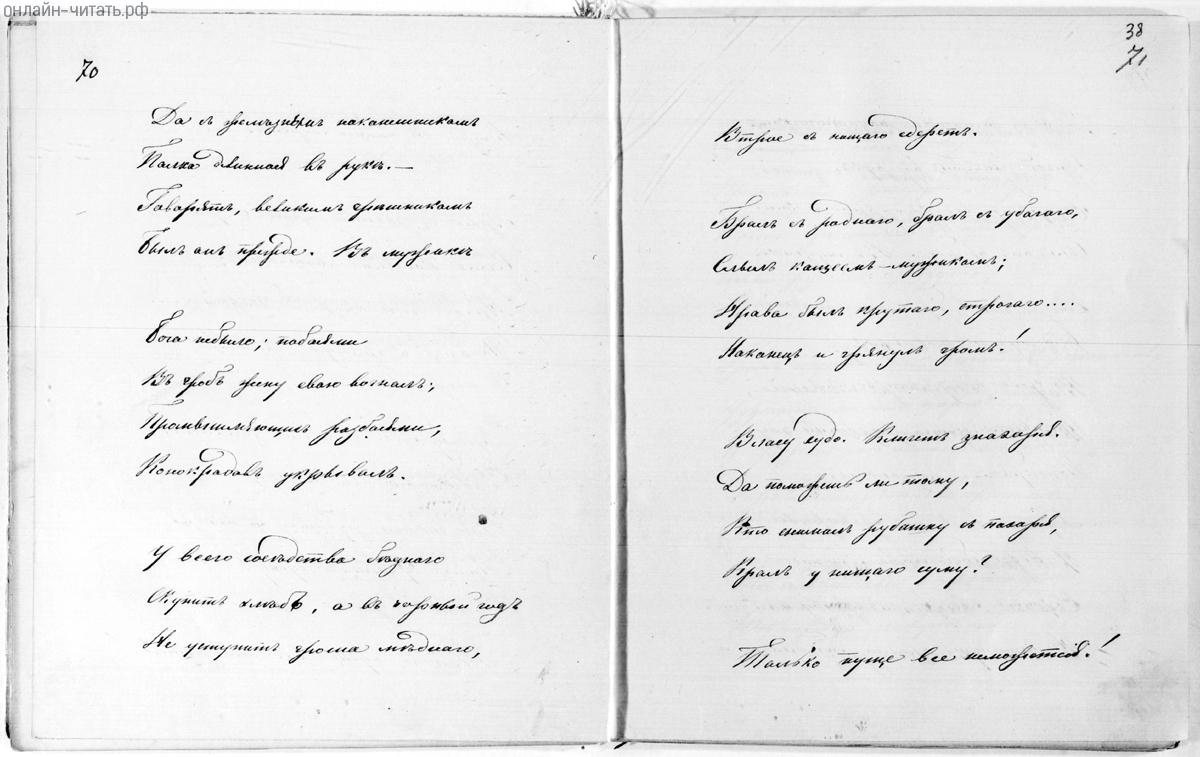 онлайн-читать.рф
70
Да съ железнымъ наконешникомъ
Палка длинная въ рукѣ. —
Говорятъ, великимъ грѣшникомъ
Былъ онъ прежде. Въ мужикѣ
Бога небыло; побоями
Въ гробъ жену свою вогналъ;
Промышляющихъ разбоями,
Конокрадовъ укрывалъ.
У всего сосѣдства бѣднаго
Скупитъ хлѣбъ, а въ чорный годъ
Не уступитъ гроша мѣднаго,
38
71
Втрое съ нищаго сдеретъ.
Бралъ съ роднаго, бралъ съ убогаго,
Слылъ кащеемъ-мужикомъ;
Нрава былъ крутаго, строгаго....
Наконецъ и грянулъ громъ!
Власу худо. Кличетъ знахаря.
Да поможешь ли тому,
Кто снималъ рубашку съ пахаря,
Кралъ у нищаго суму?
Только пуще все неможется!